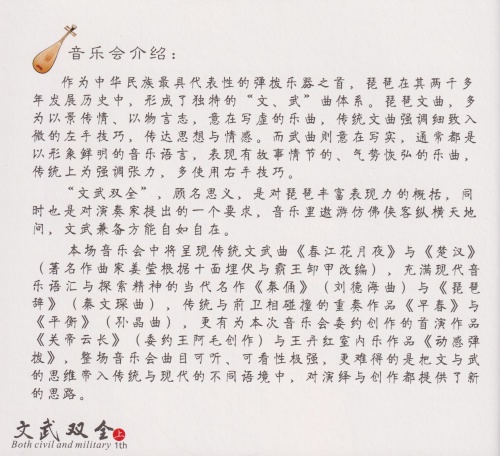 音乐会介绍：
作为中华民族最具代表性的弹拨乐器之首，琵琶在其两千多
年发展历史中，形成了独特的“文、武”曲体系。琵琶文曲，多
为以景传情、以物言志，意在写虚的乐曲，传统文曲强调细致入
微的左手技巧，传达思想与情感。而武曲则意在写实，通常都是
以形象鲜明的音乐语言，表现有故事情节的、气势恢弘的乐曲，
传统上为强调张力，多使用右手技巧。
“文武双全”，顾名思义，是对琵琶丰富表现力的概括，同
时也是对演奏家提出的一个要求，音乐里遨游仿佛侠客纵横天地
间，文武兼备方能自如自在。
本场音乐会中将呈现传统文武曲《春江花月夜》与《楚汉》
（著名作曲家姜莹根据十面埋伏与霸王卸甲改编），充满现代音
乐语汇与探索精神的当代名作《秦俑》（刘德海曲）与《琵琶
辞》（秦文琛曲），传统与前卫相碰撞的重奏作品《早春》与
《平衡》（孙晶曲），更有为本次音乐会委约创作的首演作品
《关帝云长》（委约王阿毛创作）与王丹红室内乐作品《动感弹
拨》，整场音乐会曲目可听、可看性极强，更难得的是把文与武
的思维带入传统与现代的不同语境中，对演绎与创作都提供了新
的思路。
文武双全 上
Both civil and military 1th